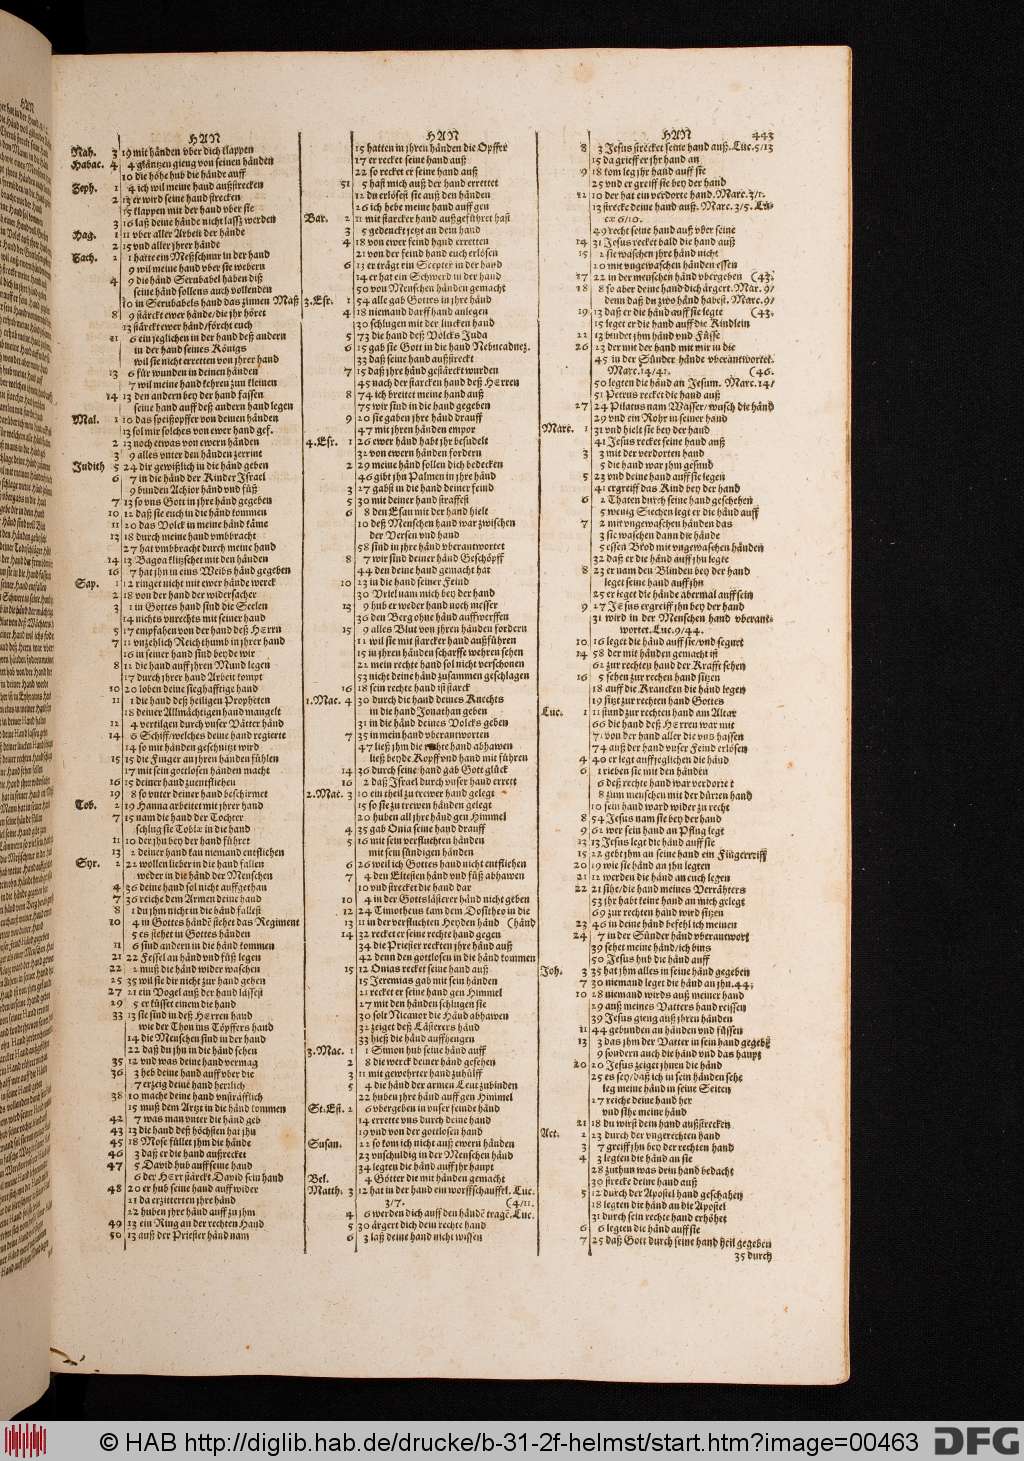 HAN
Nah. 3 19 mit händen vber dich klappen
Habac. 4 4 gläntzen gieng von seinen händen
10 die höhe hub die hände auff
Zeph. 1 4 ich wil meine hand außstrecken
2 13 er wird seine hand strecken
15 klappen mit der hand vber sie
3 16 laß deine hände nicht laß werden
Hag. 1 11 vber aller Arbeit der hände
2 15 vnd aller jhrer hände
Zach. 2 1 hatte ein Meßschnur in der hand
9 wil meine hand vber sie webern
4 9 die händ Serubabel haben diß
seine händ sollens auch vollenden
10 in Serubabels hand das zinnen Maß
8 9 stärckt ewer hände/die jhr höret
13 stärckt ewer händ/förcht euch
11 6 ein jeglichen in der hand deß andern
in der hand seines Königs
wil sie nicht erretten von jhrer hand
13 6 für wunden in deinen händen
7 wil meine hand kehren zun kleinen
14 13 den andern bey der hand fassen
seine hand auff deß andern hand legen
Mal. 1 10 das speißopffer von deinen händen
13 sol mir solches von ewer hand gef.
2 13 noch etwas von ewern händen
3 9 alles vnter den händen zerrint
Judith 5 24 dir gewißlich in die händ geben
6 7 in die händ der Kinder Israel
9 bunden Achior händ vnd füß
7 13 so vns Gott in jhre händ gegeben
10 12 daß sie euch in die händ kommen
11 20 das Volck in meine händ käme
13 18 durch meine hand vmbbracht
27 hat vmbbracht durch meine hand
14 13 Bagoa klitzschet mit den händen
16 7 hat jhn in eins Weibs händ gegeben
Sap. 1 12 ringet nicht mit ewer hände werck
2 18 von der hand der widersacher
3 1 in Gottes händ sind die Seelen
14 nichts vnrechts mit seiner hand
5 17 empfahen von der hand deß HErrn
7 11 vnzehlich Reichthumb in jhrer hand
16 in seiner hand sind beyde wir
8 12 die hand auff jhren Mund legen
17 durch jhrer hand Arbeit kompt
10 20 loben deine sieghafftige hand
11 1 die hand deß heiligen Propheten
18 deiner Allmächtigen hand mangelt
12 4 vertilgen durch vnser Vätter händ
14 6 Schiff/welches deine hand regierte
14 so mit händen geschnitzt wird
15 15 die Finger an jhren händen fühlen
17 mit sein gottlosen händen macht
16 15 deiner hand zuentfliehen
19 8 so vnter deiner hand beschirmet
Tob. 2 19 Hanna arbeitet mit jhrer hand
7 15 nam die hand der Tochter
schlug sie Tobiæ in die hand
11 10 der jhn bey der hand führet
13 2 deiner hand kan niemand entfliehen
Syr. 2 22 wollen lieber in die hand fallen
weder in die händ der Menschen
4 36 deine hand sol nicht auffgethan
7 36 reiche dem Armen deine hand
8 1 du jhm nicht in die händ fallest
10 4 in Gottes händē stehet das Regiment
5 es stehet in Gottes händen
11 6 sind andern in die händ kommen
21 22 Fessel an händ vnd füß legen
22 2 muß die händ wider waschen
25 35 wil sie dir nicht zur hand gehen
27 21 ein Vogel auß der hand lässest
29 5 er küsset einem die hand
33 13 sie sind in deß HErren hand
wie der Thon ins Töpffers hand
14 die Menschen sind in der hand
22 daß du jhn in die händ sehen
35 12 vnd was deine hand vermag
36 3 heb deine hand auff vber die
7 erzeig deine hand herrlich
38 10 mache deine hand vnsträfflich
15 muß dem Artzt in die händ kommen
42 7 was man vnter die händ geb
43 13 die hand deß höchsten hat jhn
45 18 Mose füllet jhm die hände
46 3 daß er die hand außrecket
47 5 David hub auff seine hand
6 der HErr stärckt David sein hand
48 20 er hub seine hand auff wider
21 da erzitterten jhre händ
22 huben jhre händ auff zu jhm
49 13 ein Ring an der rechten Hand
50 13 auß der Priester händ nam
HAN
15 hatten in jhren händen die Opffer
17 er recket seine hand auß
22 so recket er seine hand auß
51 5 hast mich auß der hand errettet
12 du erlösest sie auß den händen
26 ich hebe meine hand auff gen
Bar. 2 11 mit starcker hand außgeführet hast
3 5 gedenckt jetzt an dein hand
4 18 von ewer feind hand erretten
21 von der feind hand euch erlösen
6 13 er trägt ein Scepter in der hand
14 er hat ein Schwerd in der hand
50 von Menschen händen gemacht
3.Esr. 1 54 alle gab Gottes in jhre händ
4 18 niemand darff hand anlegen
30 schlugen mit der lincken hand
5 73 die hand deß Volcks Juda
6 15 gab sie Gott in die hand Nebucadnez.
33 daß seine hand außstreckt
7 15 daß jhre händ gestärckt wurden
45 nach der starcken hand deß HErren
8 74 ich breitet meine hand auß
75 wir sind in die hand gegeben
9 20 sie gaben jhre händ drauff
47 mit jhren händen empor
4.Esr. 1 26 ewer händ habt jhr besudelt
32 von ewern händen fordern
2 29 meine händ sollen dich bedecken
46 gibt jhn Palmen in jhre händ
3 27 gabst in die hand deiner feind
5 30 mit deiner hand straffest
6 8 den Esau mit der hand hielt
10 deß Menschen hand war zwischen
der Versen vnd hand
58 sind in jhre händ vberantwortet
8 7 wir sind deiner händ Geschöpff
44 den deine hand gemacht hat
10 23 in die hand seiner Feind
30 Vriel nam mich bey der hand
13 9 hub er weder hand noch messer
36 den Berg ohne händ auffwerffen
15 9 alles Blut von jhren händen fordern
11 wil sie mit starcker hand außführen
15 in jhren händen scharffe wehren sehen
21 mein rechte hand sol nicht verschonen
53 nicht deine händ zusammen geschlagen
16 18 sein rechte hand ist starck
1.Mac. 4 30 durch die hand deines Knechts
in die hand Jonathan geben
31 in die händ deines Volcks geben
7 35 in mein hand vberantworten
47 ließ jhm die rechte hand abhawen
ließ beyde Kopff vnd hand mit führen
14 36 durch seine hand gab Gott glück
16 2 daß Israel durch vnser hand errett
2.Mac. 3 10 ein theil zu trewer hand gelegt
15 so sie zu trewen händen gelegt
20 huben all jhre händ gen Himmel
4 35 gab Onia seine hand drauff
5 16 mit sein verfluchten händen
mit sein sündigen händen
6 26 weil ich Gottes hand nicht entfliehen
7 4 den Eltesten händ vnd füß abhawen
10 vnd strecket die hand dar
10 4 in der Gottslästerer händ nicht geben
12 24 Timotheus kam dem Dositheo in die
13 11 in der verfluchten Heyden händ (händ
14 32 recket er seine rechte hand gegen
34 die Priester reckten jhre händ auß
42 denn den gottlosen in die händ kommen
15 12 Onias recket seine hand auß
15 Jeremias gab mit sein händen
21 recket er seine hand gen Himmel
27 mit den händen schlugen sie
30 solt Nicanor die Händ abhawen
32 zeiget deß Lästerers händ
33 hieß die händ auffhengen
3.Mac. 1 1 Simon hub seine händ auff
2 8 die werck deiner händ gesehen
3 11 mit gewehrter hand zuhülff
5 4 die händ der armen Leut zubinden
22 huben jhre händ auff gen Himmel
St.Est. 2 6 vbergeben in vnser feinde händ
14 errette vns durch deine hand
19 vnd von der gottlosen hand
Susan. 22 so kom ich nicht auß ewern händen
23 vnschuldig in der Menschen händ
34 legten die händ auff jhr haupt
Bel. 4 Götter die mit händen gemacht
Matth. 3 12 hat in der hand ein worffschauffel. Luc.
3/7. (4/11.
4 6 werden dich auff den händē tragē. Luc.
5 30 ärgert dich dein rechte hand
6 3 laß deine hand nicht wissen
HAN 443
8 3 Jesus strecket seine hand auß. Luc. 5/13
15 da grieff er jhr hand an
9 18 kom leg jhr hand auff sie
25 vnd er greiff sie bey der hand
12 10 der hat ein verdorte hand. Marc. 3/1.
13 strecke deine hand auß. Marc. 3/5. Lu-
cæ 6/10.
49 recht seine hand auff vber seine
14 31 Jesus recket bald die hand auß
15 2 sie waschen jhre händ nicht
20 mit vngewaschen händen essen
17 22 in der menschen händ vbergeben (43.
18 8 so aber deine hand dich ärgert. Mar. 9/
denn daß du zwo händ habest. Marc. 9/
19 13 daß er die händ auff sie legte (43.
15 leget er die händ auff die Kindlein
22 13 bindet jhm händ vnd Füsse
26 23 der mit der hand mit mir in die
45 in der Sünder hände vberantwortet.
Marc. 14/41. (46.
50 legten die händ an Jesum. Marc. 14/
51 Petrus recket die hand auß
27 24 Pilatus nam Wasser/wusch die händ
29 vnd ein Rohr in seiner hand
Marc. 1 31 vnd hielt sie bey der hand
41 Jesus recket seine hand auß
3 3 mit der verdorten hand
5 die hand war jhm gesund
5 23 vnd deine hand auff sie legen
41 ergreiff das Kind bey der hand
6 2 Thaten durch seine hand geschehen
5 wenig Siechen legt er die händ auff
7 2 mit vngewaschen händen das
3 sie waschen dann die hände
5 essen Brod mit vngewaschen händen
32 daß er die händ auff jhn legte
8 23 er nam den Blinden bey der hand
leget seine hand auff jhn
25 er leget die hände abermal auff sein
9 27 JEsus ergreiff jhn bey der hand
31 wird in der Menschen hand vberant-
wortet. Luc. 9/44.
10 16 leget die händ auff sie/vnd segnet
14 58 der mit händen gemacht ist
62 zur rechten hand der Krafft sehen
16 5 sehen zur rechen hand sitzen
18 auff die Krancken die händ legen
19 sitzt zur rechten hand Gottes
Luc. 1 11 stund zur rechten hand am Altar
66 die hand deß HErren war mit
71 von der hand aller die vns hassen
74 auß der hand vnser Feind erlösen
4 40 er legt auff jeglichen die händ
6 1 rieben sie mit den händen
6 deß rechte hand war verdorret
8 zum menschen mit der dürren hand
10 sein hand ward wider zu recht
8 54 Jesus nam sie bey der hand
9 62 wer sein hand an Pflug legt
13 13 Jesus legt die händ auff sie
15 22 gebt jhm an seine hand ein Fingerreiff
20 19 wie sie händ an jhn legten
21 12 werden die händ an euch legen
22 21 sihe/die hand meines Verräthers
53 jhr habt keine hand an mich gelegt
69 zur rechten hand wird sitzen
23 46 in deine händ befehl ich meinen
24 7 in der Sünder händ vberantwort
39 sehet meine händ/ich bins
50 Jesus hub die händ auff
Joh. 3 35 hat jhm alles in seine händ gegeben
7 30 niemand leget die händ an jhn. 44;
10 28 niemand wirds auß meiner hand
29 auß meines Vatters hand reissen
39 Jesus gieng auß jhren händen
11 44 gebunden an händen vnd füssen
13 3 das jhm der Vatter in sein hand gegebē
9 sondern auch die händ vnd das haupt
20 20 Jesus zeiget jhnen die händ
25 es sey/daß ich in sein händen sehe
leg meine händ in seine Seiten
27 reiche deine hand her
vnd sihe meine händ
21 18 du wirst dein hand außstrecken
Act. 2 23 durch der vngerechten hand
3 7 greiff jhn bey der rechten hand
4 3 legten die händ an sie
28 zuthun was dein hand bedacht
30 strecke deine hand auß
5 12 durch der Apostel hand geschahen
18 legten die händ an die Apostel
31 durch sein rechte hand erhöhet
6 6 legten die händ auff sie
7 25 daß Gott durch seine hand heil gegeben
35 durch
© HAB http://diglib.hab.de/drucke/b-31-2f-helmst/start.htm?image=00463
DFG